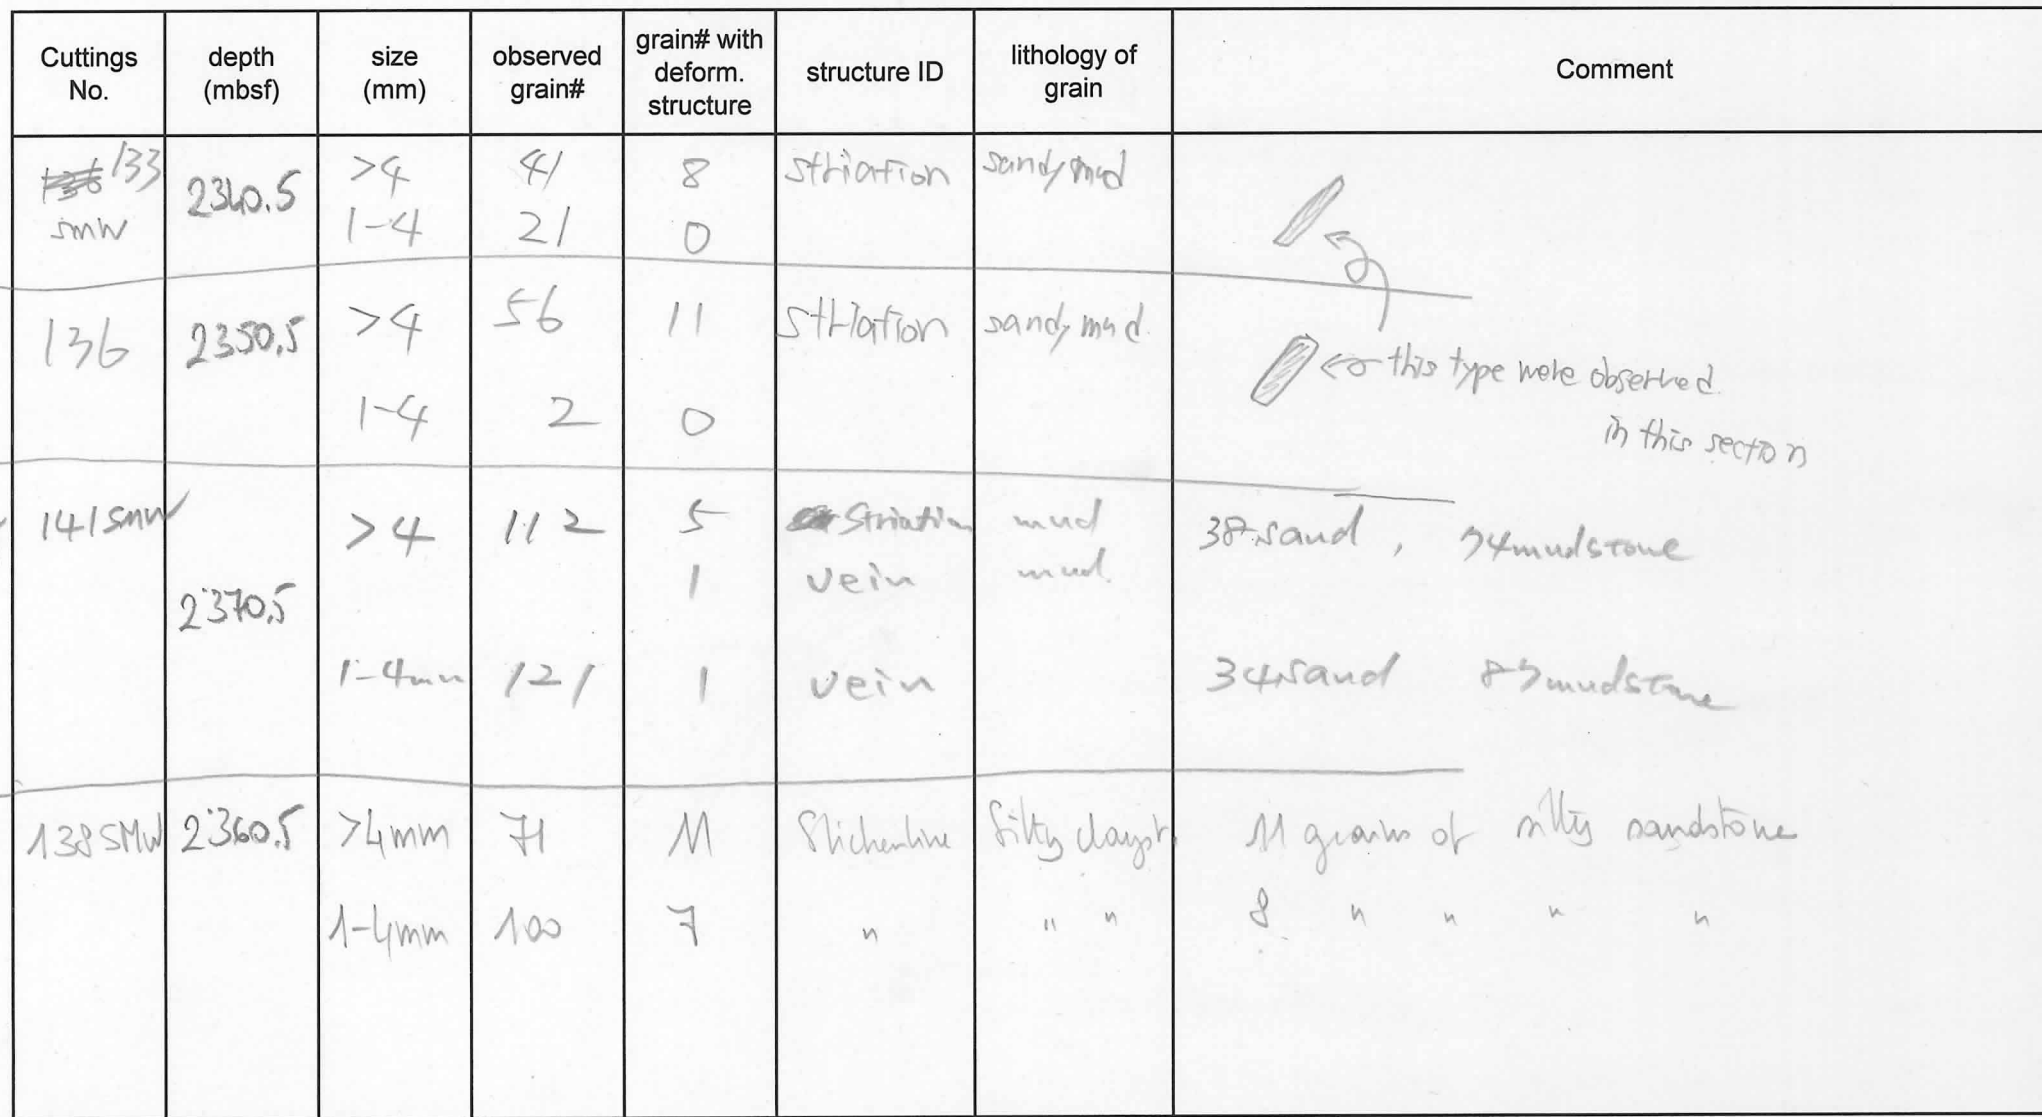 Cuttings No. depth (mbsf) size (mm) observed grain# grain# with deform. structure structure ID lithology of grain Comment
133 SMW 2340.5 >4 41 8 striation sandy mud
1-4 21 0
136 2350.5 >4 56 11 striation sandy mud.
this type were observed.
1-4 2 0
in this section
141SMW 2370.5 >4 112 5 Striation mud 38 sand, 74 mudstone
1 vein mud.
1-4mm 121 1 vein 34 sand 87 mudstone
138SMW 2360.5 >4mm 71 11 Slickenline Silty clayst. 11 grains of silty sandstone
1-4mm 100 7 " " " 8 " " " "